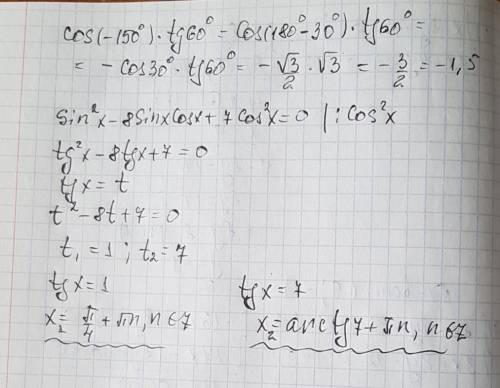 cos(-150°)·tg60° = cos(180°-30°)·tg60° =
= - cos30°·tg60° = - √3/2 · √3 = - 3/2 = -1,5
Sin²x - 8SinxCosx + 7Cos²x = 0 | : Cos²x
tg²x - 8tgx + 7 = 0
tgx = t
t² - 8t + 7 = 0
t₁ = 1 ; t₂ = 7
tgx = 1
x₂ = π/4 + πn, n∈Z
tgx = 7
x₂ = arctg7 + πn, n∈Z